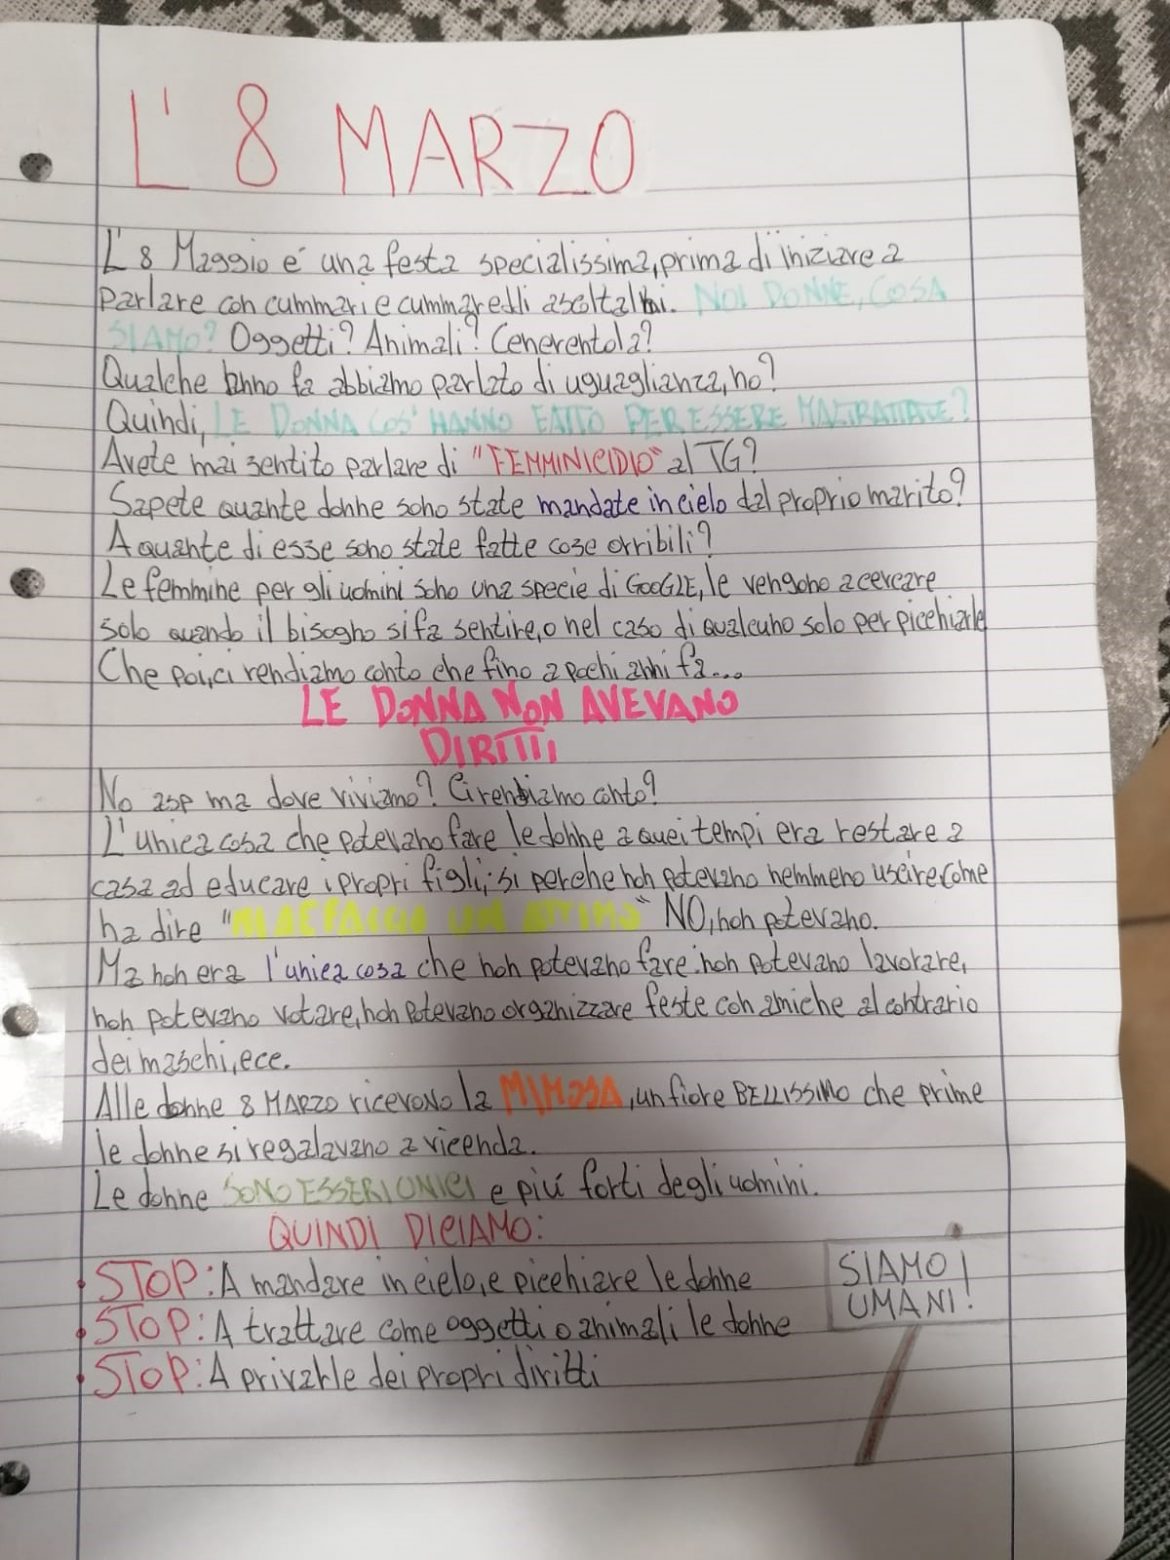 L' 8 MARZO
L' 8 Maggio é una festa specialissima, prima di iniziare a
parlare con cummari e cummaredli ascoltalmi. NOI DONNE, COSA
SIAMO? Oggetti? Animali? Cenerentola?
Qualche hanno fa abbiamo parlato di uguaglianza, no?
Quindi, LE DONNA COS' HANNO FATTO PER ESSERE MALTRATTATE?
Avete mai sentito parlare di "FEMMINICIDIO" al TG?
Sapete quante donne sono state mandate in cielo dal proprio marito?
A quante di esse sono state fatte cose orribili?
Le femmine per gli uomini sono una specie di GOOGLE, le vengono a cercare
solo quando il bisogno si fa sentire, o nel caso di qualcuno solo per picchiarle
Che poi, ci rendiamo conto che fino a pochi anni fa...
LE DONNA NON AVEVANO
DIRITTI,
No asp ma dove viviamo? Ci rendiamo conto?
L'unica cosa che potevano fare le donne a quei tempi era restare a
casa ad educare i propri figli; si perche non potevano nemmeno uscire come
ha dire " UN ATTIMO" NO, non potevano.
Ma non era l'unica cosa che non potevano fare: non potevano lavorare,
non potevano votare, non potevano organizzare feste con amiche al contrario
dei maschi, ecc.
Alle donne 8 MARZO ricevono la MIMOSA, un fiore BELLISSIMO che prime
le donne si regalavano a vicenda.
Le donne SONO ESSERI UNICI e piú forti degli uomini.
QUINDI DICIAMO:
STOP: A mandare in cielo, e picchiare le donne
STOP: A trattare come oggetti o animali le donne
STOP: A privarle dei propri diritti
SIAMO
UMANI!